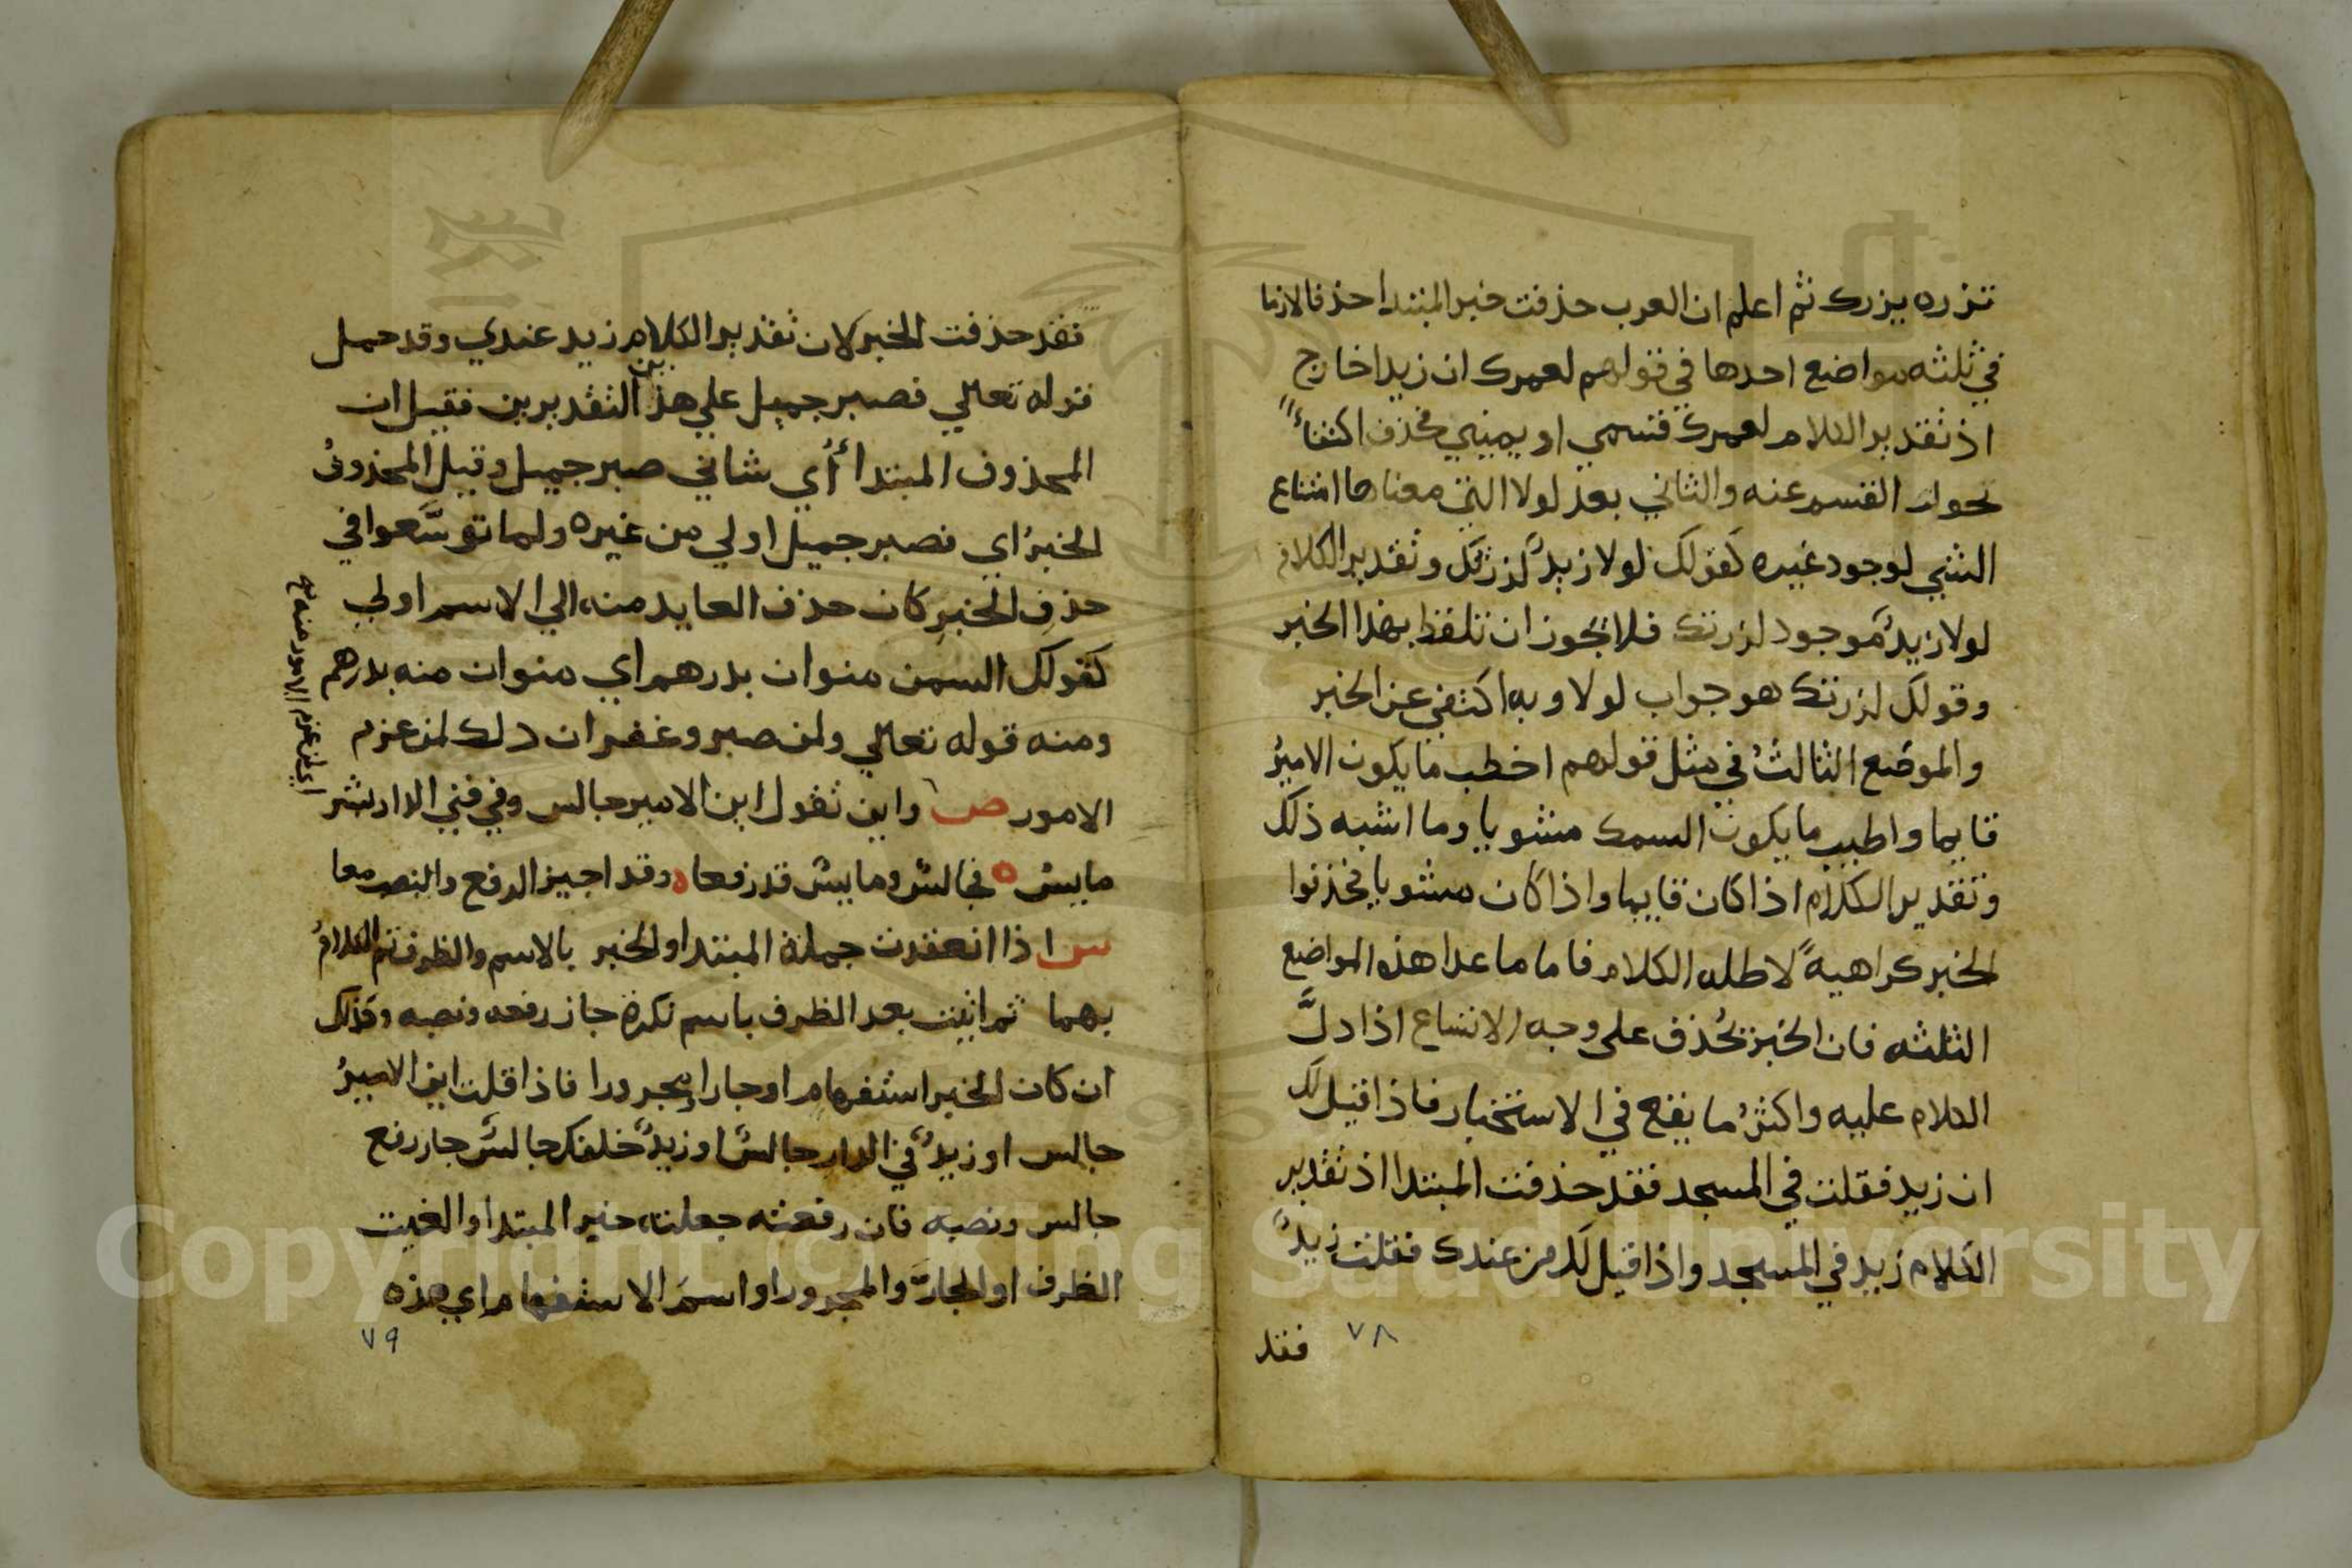 تزره يزرك ثم اعلم ان العرب حذفت خبر المبتدا حذفا لازما
في ثلثه مواضع احدها في قولهم لعمرك ان زيدا خارج
اذ تقدير الكلام لعمرك قسمي او يميني فحذف اكتفاءً
بجواب القسم عنه والثاني بعد لولا التي معناها امتناع
الشي لوجود غيره كقولك لولا زيدٌ لزرتك وتقدير الكلام
لولا زيدٌ موجود لزرتك فلا يجوز ان تلفظ بهذا الخبر
وقولك لزرتك هو جواب لولا وبه اكتفي عن الخبر
والموضع الثالثُ في مثل قولهم اخطب ما يكون الاميرُ
قايما واطيب ما يكون السمك مشويا وما اشبه ذلك
وتقدير الكلام اذا كان قايما واذا كان مشويا فحذفوا
الخبر كراهيةً لاطله الكلام فاما ما عدا هذه المواضع
الثلثه فان الخبر يُحذف على وجه الاتساع اذا دلَّ
الكلام عليه واكثرُ ما يقع في الاستخبار فاذا قيل لك
ان زيد فقلت في المسجد فقد حذفت المبتدا اذ تقدير
الكلام زيد في المسجد واذا قيل لك من عندك فقلت زيدٌ
فقد
٧٨
فقد حذفت الخبر لان تقدير الكلام زيد عندي وقد حمل
قوله تعالي فصبر جميل علي هذين التقديرين فقيل ان
المحذوف المبتدا أي شاني صبر جميل وقيل المحذوفُ
الخبرُ اي فصبر جميل اولي من غيره ولما توسَّعوا في
حذفِ الخبرِ كان حذف العايد منه الي الاسم اولي
كقولك السمن منوان بدرهم اي منوان منه بدرهم
ومنه قوله تعالي ولمن صبر وغفر ان ذلك لمن عزم
الامور ص واين تقول اين الامير جالس وفي فني الدار بشر
مايس فجالسٌ ومايسٌ قد رفعا وقد اجيز الرفع والنصب معا
س اذا انعقدت جملة المبتدا والخبر بالاسم والظرف تم الكلامُ
بهما ثم اتيت بعد الظرف باسم نكرة جاز رفعه ونصبه وكذلك
ان كان الخبر استفهام او جارا ومجرورا فاذا قلت اين الاميرُ
جالس او زيدٌ في الدار جالسٌ او زيدٌ خلفك جالسٌ جاز رفع
جالس ونصبه فان رفعته جعلته خبر المبتدا والغيت
الظرف او الجارَّ والمجرور او اسمَ الاستفهام اي هذه
٧٩
اي لمن عزم الامور منه
Copyright © King Saud University